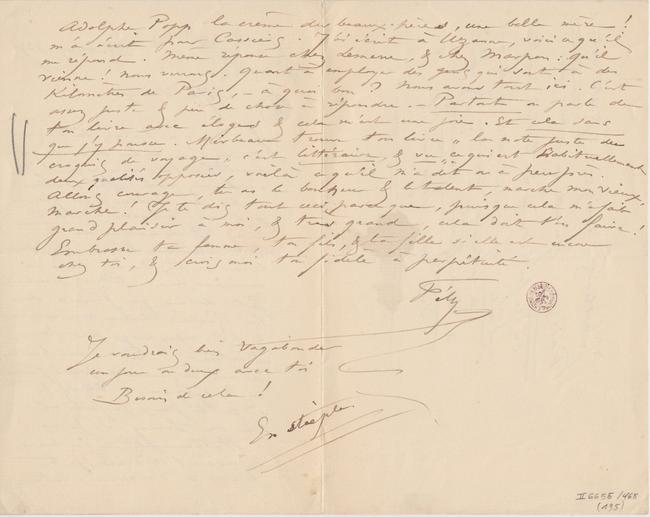 Adolphe Popp la crème des beaux-pères, une belle mère !
m'a écrit pour Cassiers. J'ai écrit à Uzanne, voici ce qu'il
me répond. Même réponse chez Lemerre, & chez Marpon : qu'il
vienne ! nous verrons. Quant à employer des gens qui sont à des
Kilomètres de Paris, – à quoi bon ? Nous avons tout ici. C'est
assez juste & peu de chose à répondre. – Partout on parle de
ton livre avec éloges & cela m'est une joie. Et cela sans
que j'y pousse. Mirbeau trouve ton livre « la note juste des
croquis de voyage, c'est littéraire, & vu », ce qui est habituellement
deux qualités opposées, voilà ce qu'il m'a dit ou à peu près.
Allons courage, tu as le bonheur & le talent, marche mon vieux,
marche ! Je te dis tout ceci parce que, puisque cela m'a fait
grand plaisir à moi, & très grand, cela doit t'en faire !
Embrasse ta femme, ton fils, & ta fille si elle est encore
chez toi, & crois moi ton fidèle à perpétuité.
Fély
Je voudrais bien Vagabonder
un jour ou deux avec toi
Besoin de cela !
En steeple
II 6655/468
(195)